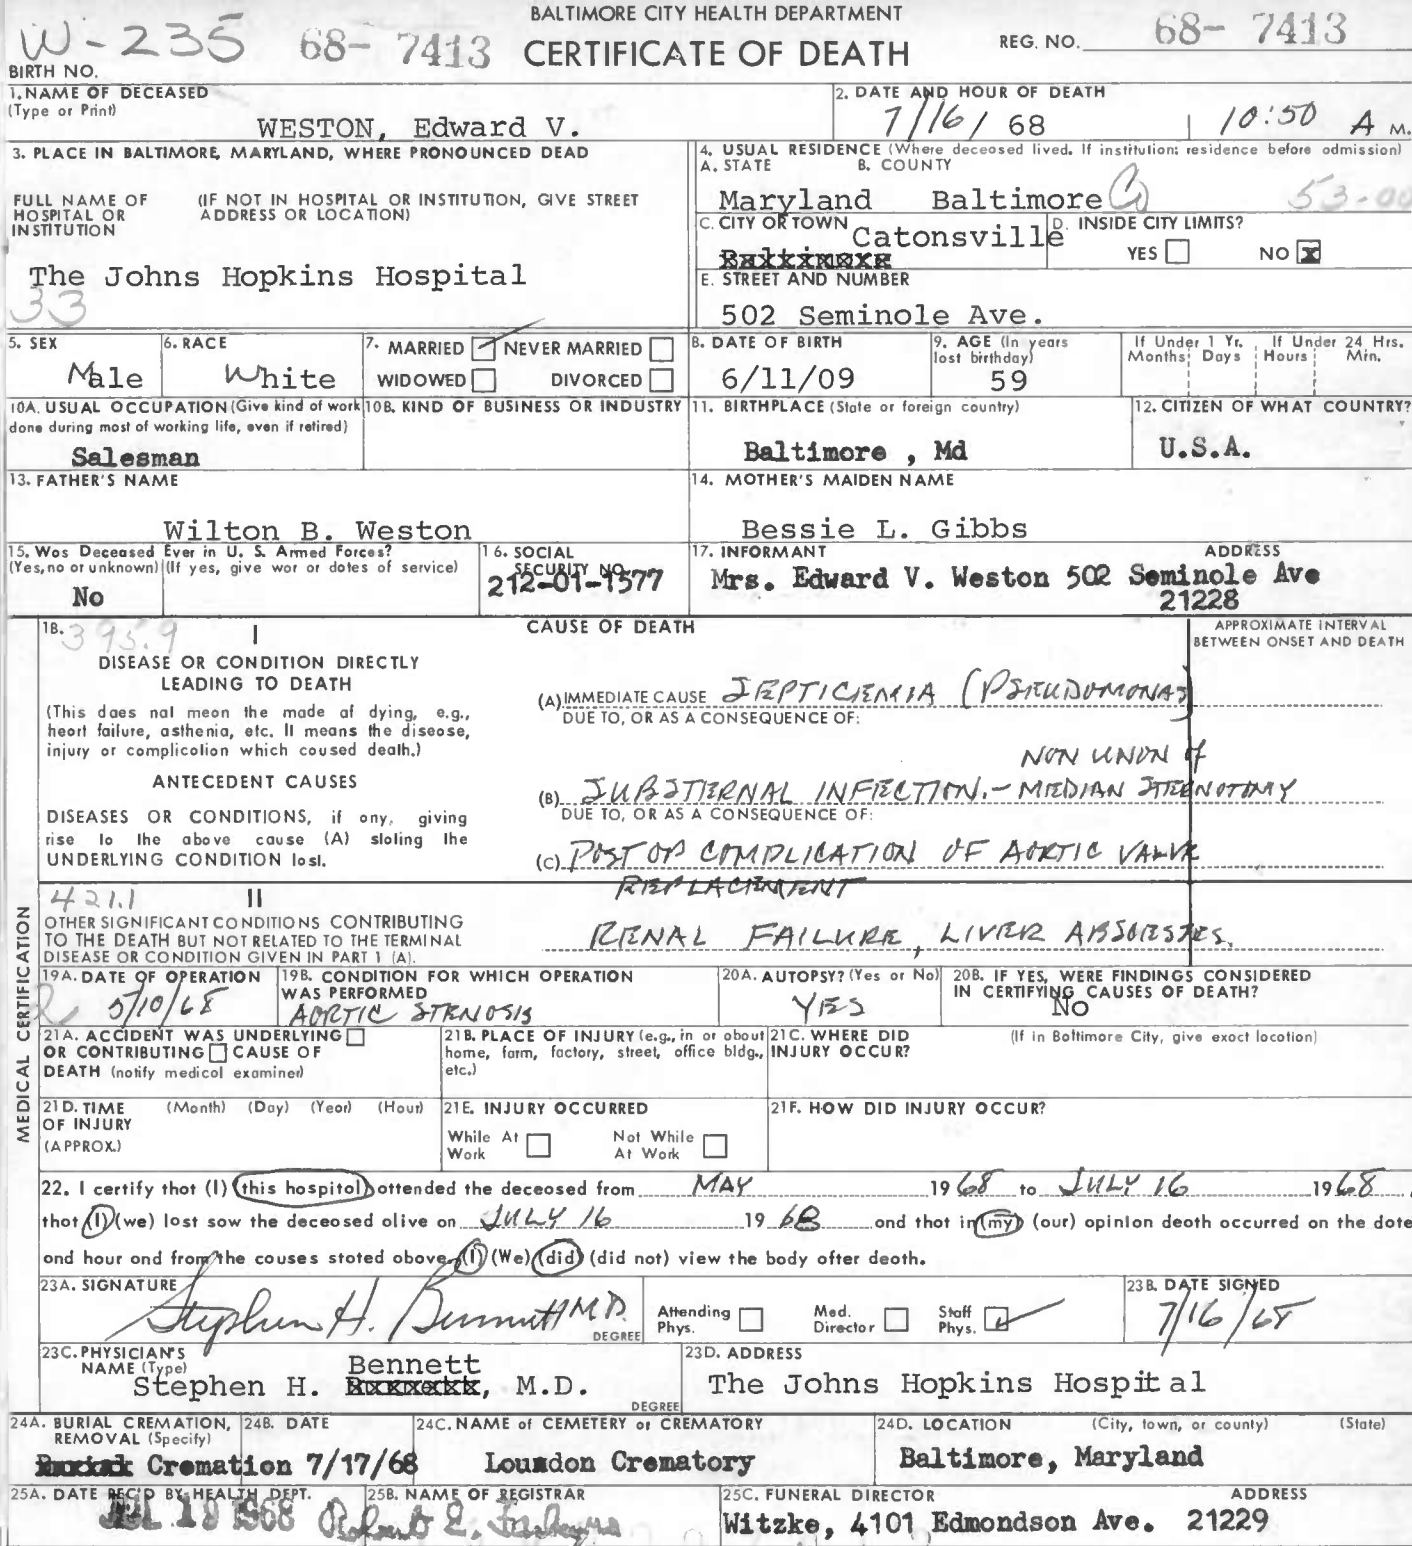 BALTIMORE CITY HEALTH DEPARTMENT
W-235 68- 7413 CERTIFICATE OF DEATH REG. NO. 68- 7413
BIRTH NO.
1. NAME OF DECEASED
(Type or Print)
WESTON, Edward V.
2. DATE AND HOUR OF DEATH
7/16/68 10:50 A M.
3. PLACE IN BALTIMORE, MARYLAND, WHERE PRONOUNCED DEAD
FULL NAME OF HOSPITAL OR INSTITUTION
(IF NOT IN HOSPITAL OR INSTITUTION, GIVE STREET
ADDRESS OR LOCATION)
The Johns Hopkins Hospital
33
4. USUAL RESIDENCE (Where deceased lived. If institution: residence before admission)
A. STATE B. COUNTY
Maryland Baltimore Co 53-00
C. CITY OR TOWN
Catonsville
Baltimore
D. INSIDE CITY LIMITS?
YES NO x
E. STREET AND NUMBER
502 Seminole Ave.
5. SEX
Male
6. RACE
White
7. MARRIED ✓ NEVER MARRIED
WIDOWED DIVORCED
8. DATE OF BIRTH
6/11/09
9. AGE (In years
last birthday)
59
If Under 1 Yr. If Under 24 Hrs.
Months Days Hours Min.
10A. USUAL OCCUPATION (Give kind of work
done during most of working life, even if retired)
Salesman
10B. KIND OF BUSINESS OR INDUSTRY
11. BIRTHPLACE (State or foreign country)
Baltimore , Md
12. CITIZEN OF WHAT COUNTRY?
U.S.A.
13. FATHER'S NAME
Wilton B. Weston
14. MOTHER'S MAIDEN NAME
Bessie L. Gibbs
15. Was Deceased Ever in U. S. Armed Forces?
(Yes, no or unknown) (If yes, give war or dates of service)
No
16. SOCIAL
SECURITY NO.
212-01-1577
17. INFORMANT ADDRESS
Mrs. Edward V. Weston 502 Seminole Ave
21228
MEDICAL CERTIFICATION
18. 395.9 I
CAUSE OF DEATH
APPROXIMATE INTERVAL
BETWEEN ONSET AND DEATH
DISEASE OR CONDITION DIRECTLY
LEADING TO DEATH
(This does not mean the mode of dying, e.g.,
heart failure, asthenia, etc. It means the disease,
injury or complication which caused death.)
(A) IMMEDIATE CAUSE SEPTICEMIA (PSEUDOMONAS)
DUE TO, OR AS A CONSEQUENCE OF:
ANTECEDENT CAUSES
DISEASES OR CONDITIONS, if any, giving
rise to the above cause (A) stating the
UNDERLYING CONDITION last.
NON UNION of
(B) SUBSTERNAL INFECTION. - MEDIAN STERNOTOMY
DUE TO, OR AS A CONSEQUENCE OF:
(C) POST OP COMPLICATION OF AORTIC VALVE
REPLACEMENT
421.1 II
OTHER SIGNIFICANT CONDITIONS CONTRIBUTING
TO THE DEATH BUT NOT RELATED TO THE TERMINAL
DISEASE OR CONDITION GIVEN IN PART 1 (A).
RENAL FAILURE, LIVER ABSCESSES.
19A. DATE OF OPERATION
5/10/68
19B. CONDITION FOR WHICH OPERATION
WAS PERFORMED
AORTIC STENOSIS
20A. AUTOPSY? (Yes or No)
YES
20B. IF YES, WERE FINDINGS CONSIDERED
IN CERTIFYING CAUSES OF DEATH?
No
21A. ACCIDENT WAS UNDERLYING
OR CONTRIBUTING CAUSE OF
DEATH (notify medical examiner)
21B. PLACE OF INJURY (e.g., in or about
home, farm, factory, street, office bldg.,
etc.)
21C. WHERE DID (If in Baltimore City, give exact location)
INJURY OCCUR?
21D. TIME (Month) (Day) (Year) (Hour)
OF INJURY
(APPROX.)
21E. INJURY OCCURRED
While At Work Not While At Work
21F. HOW DID INJURY OCCUR?
22. I certify that (I) (this hospital) attended the deceased from MAY 1968 to JULY 16 1968,
that (I) (we) last saw the deceased alive on JULY 16 1968 and that in (my) (our) opinion death occurred on the date
and hour and from the causes stated above. (I) (We) (did) (did not) view the body after death.
23A. SIGNATURE
Stephen H. Bennett M.D.
DEGREE
Attending Phys. Med. Director Staff Phys. ✓
23B. DATE SIGNED
7/16/68
23C. PHYSICIAN'S
NAME (Type)
Bennett
Stephen H. , M.D.
DEGREE
23D. ADDRESS
The Johns Hopkins Hospital
24A. BURIAL CREMATION,
REMOVAL (Specify)
Burial Cremation
24B. DATE
7/17/68
24C. NAME of CEMETERY or CREMATORY
Loudon Crematory
24D. LOCATION (City, town, or county) (State)
Baltimore, Maryland
25A. DATE REC'D BY HEALTH DEPT.
JUL 19 1968
25B. NAME OF REGISTRAR
Robert E.
25C. FUNERAL DIRECTOR ADDRESS
Witzke, 4101 Edmondson Ave. 21229